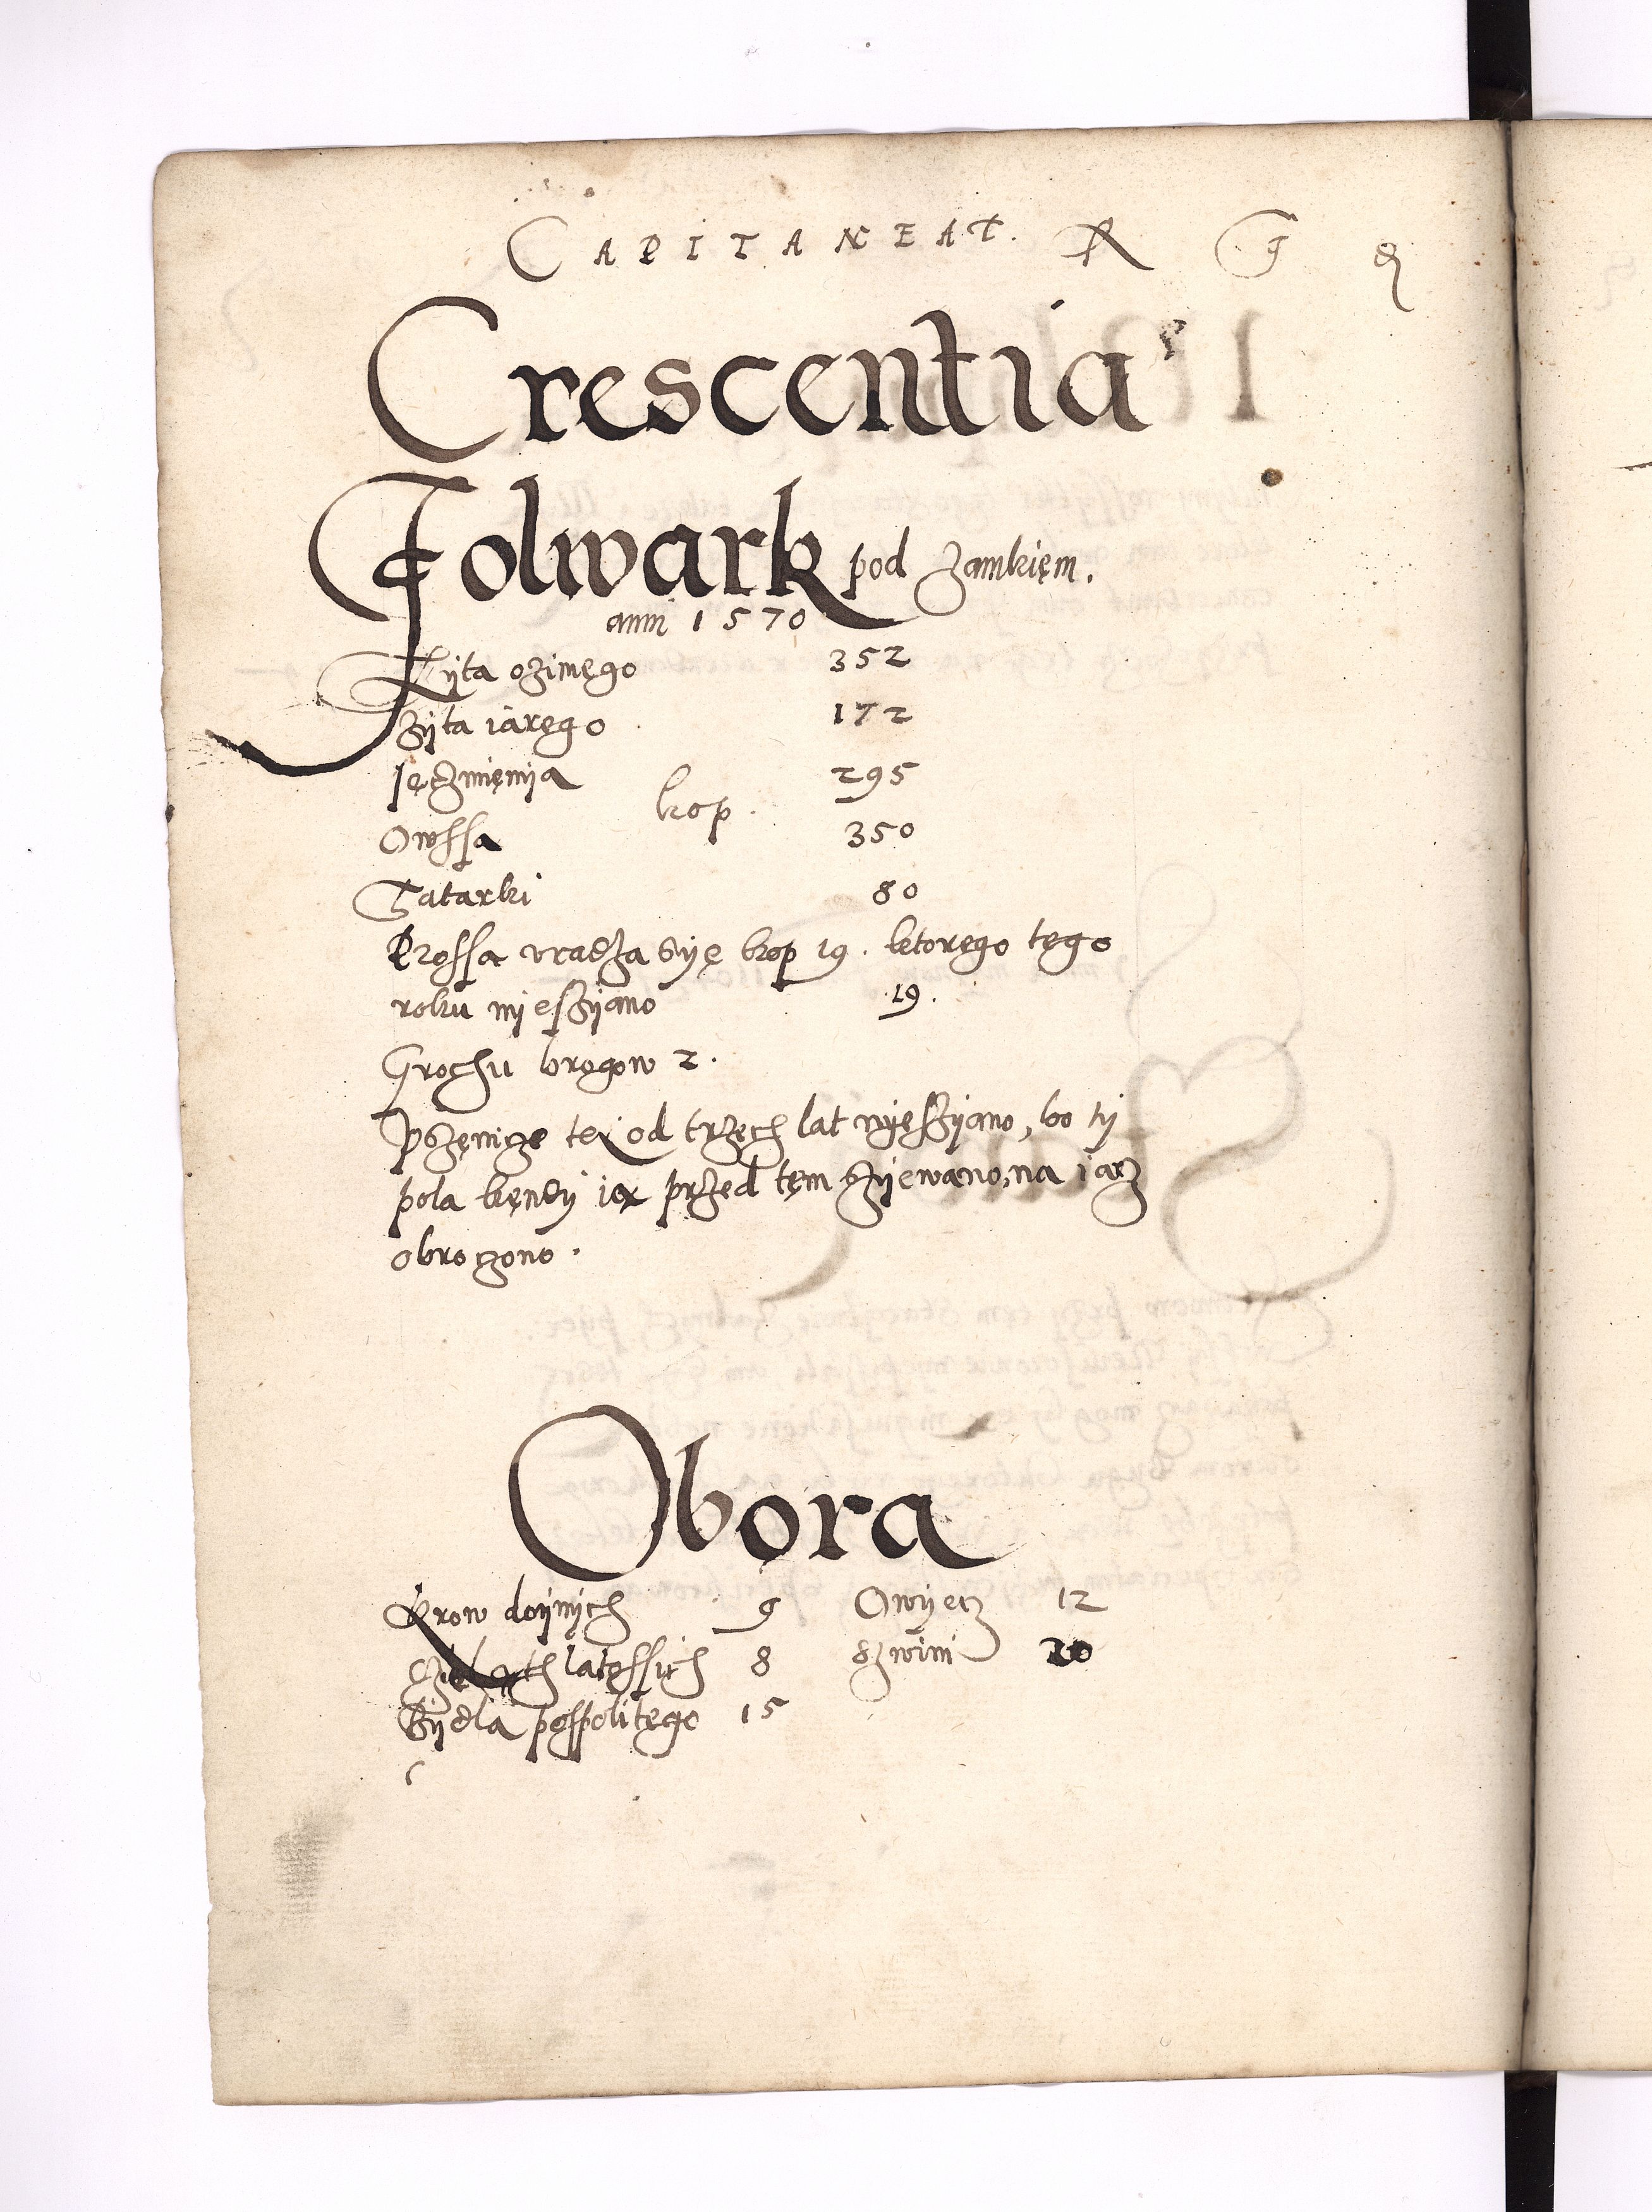 CAPITANEAT. R G
Crescentia
Folwark pod Zamkięm.
anni 1570
Zyta ozimęgo 352
Zyta iaręgo 172
Jęczmięnia 295
kop.
Owssa 350
Tatarki 80
Prossa vradza syę kop 19. ktoręgo tęgo
roku nyeszyano 19.
Grochu brogow 2.
Pszęnicze tej od trzech lat nyeszyano, bo ty
pola kęndy ią przed tęm szyewano, na iarz
obroczono.
Obora
Krow doynych 9 Owyecz 12
latossich 8 Szwini 20
Bydla pospolitęgo 15